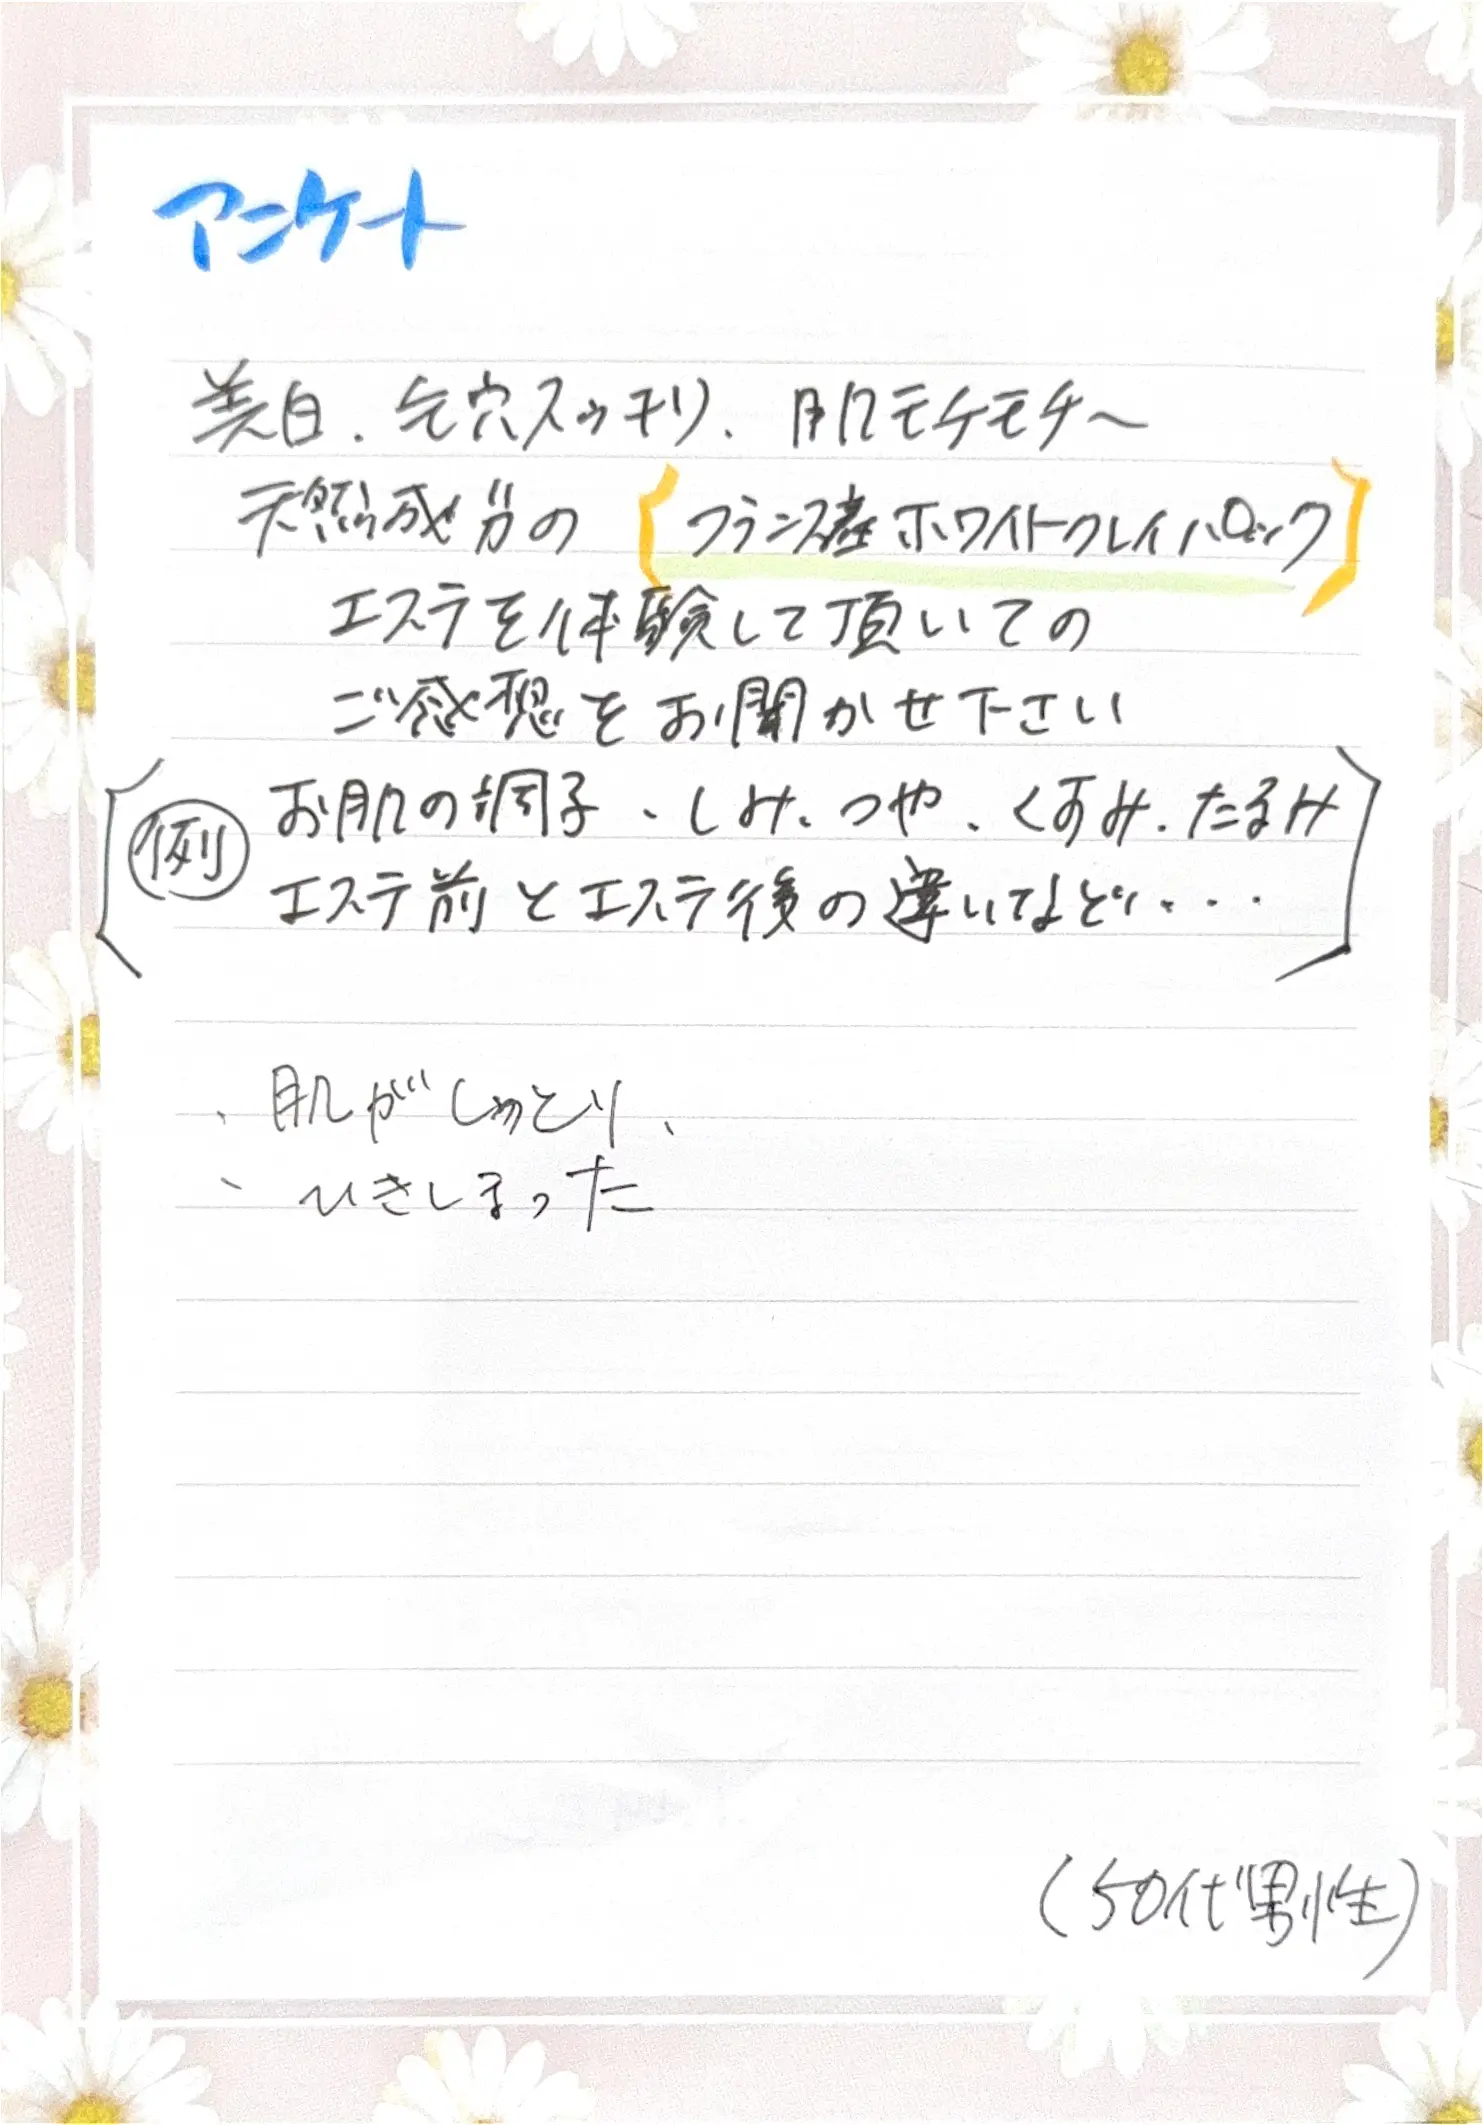 アンケート
美白、毛穴スッキリ、肌モチモチ〜
天然成分の【フランス産ホワイトクレイパック】
エステを体験して頂いての
ご感想をお聞かせ下さい
【例 お肌の調子、しみ、つや、くすみ、たるみ
エステ前とエステ後の違いなど・・・】
・肌がしっとり、
・ひきしまった
(50代男性)